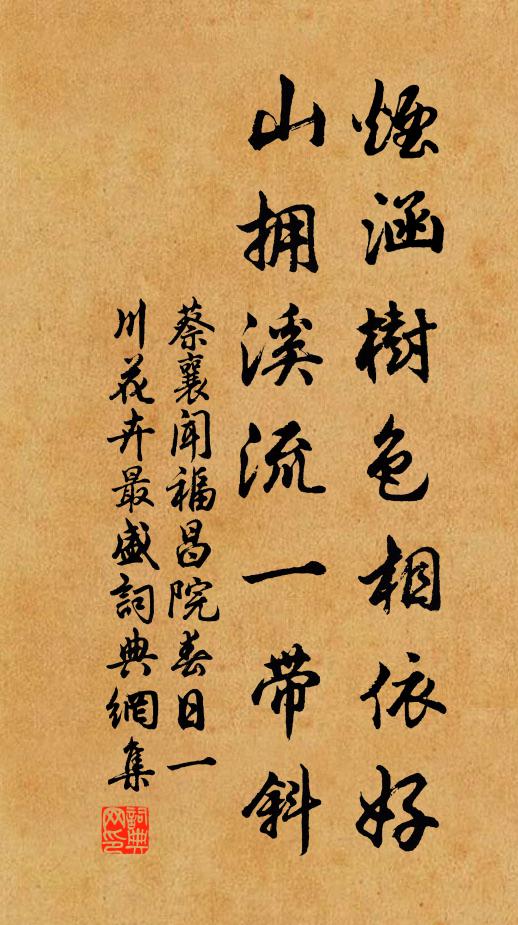 煙涵樹色相依好
山拥溪流一带斜
蔡襄闻福昌院春日一
川花卉最盛詞典網集
詞典网印